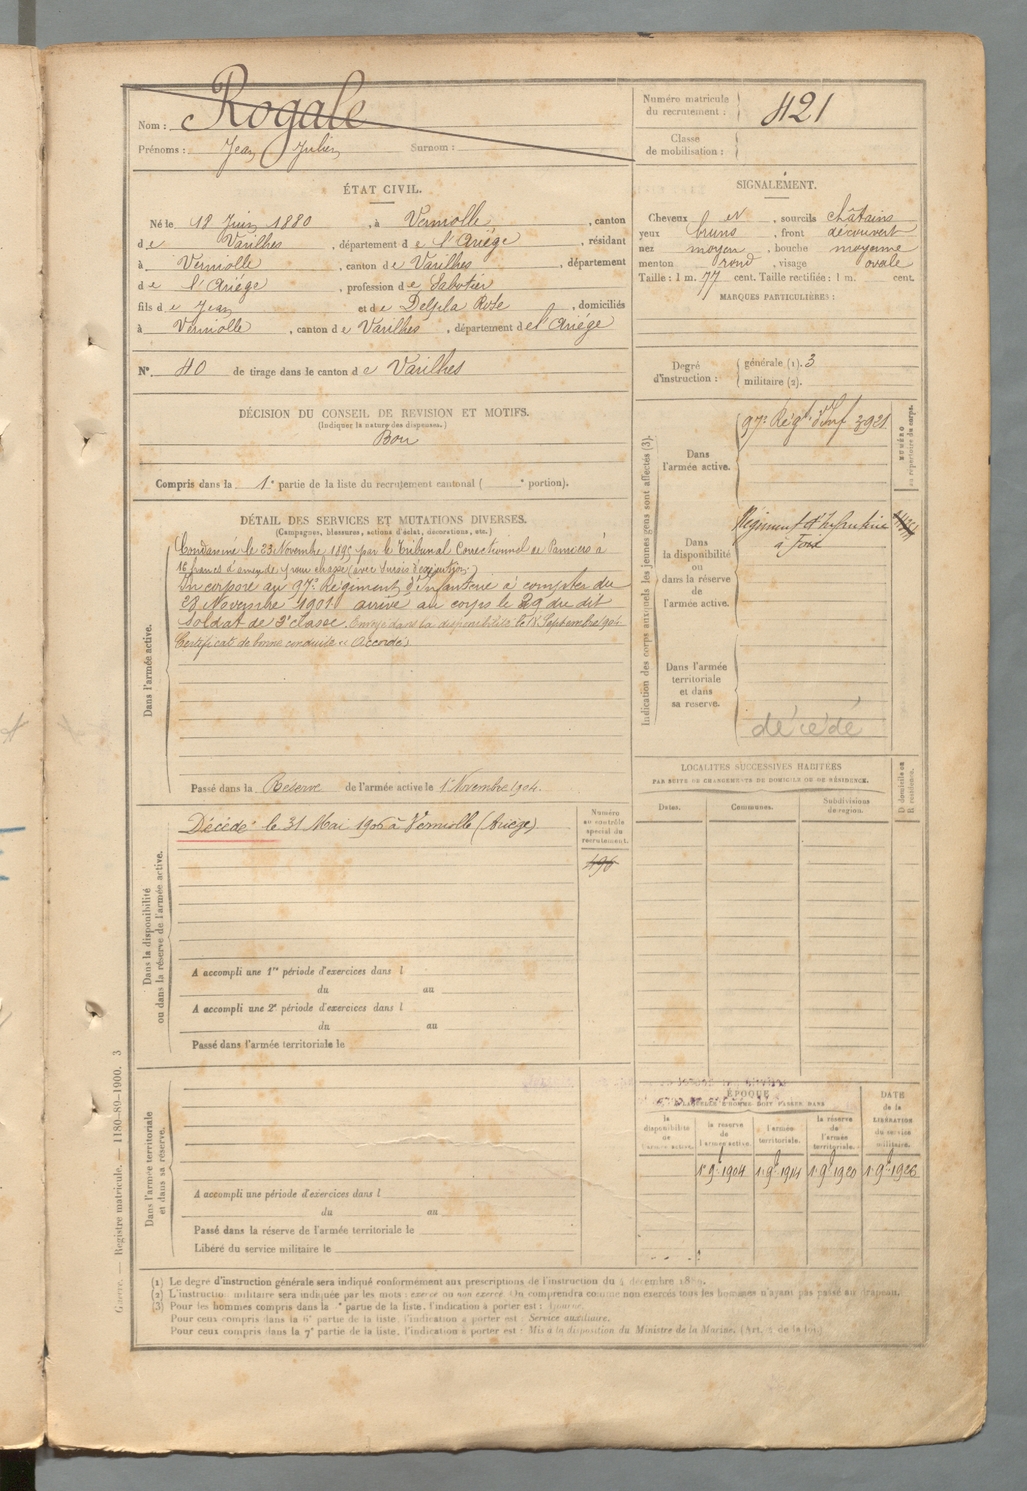 Nom : Rogale
Prénoms : Jean Julien Surnom :
Numéro matricule du recrutement : 421
Classe de mobilisation :
ÉTAT CIVIL.
Né le 18 Juin 1880, à Verniolle, canton
de Varilhes, département de l'Ariége, résidant
à Verniolle, canton de Varilhes, département
de l'Ariége, profession de Sabotier
fils de Jean et de Delpla Rose, domiciliés
à Verniolle, canton de Varilhes, département de l'Ariége
N° 40 de tirage dans le canton de Varilhes
SIGNALEMENT.
Cheveux et, sourcils châtains
yeux bruns, front découvert
nez moyen, bouche moyenne
menton rond, visage ovale
Taille : 1 m. 77 cent. Taille rectifiée : 1 m. cent.
MARQUES PARTICULIÈRES :
Degré d'instruction :
générale (1). 3
militaire (2).
DÉCISION DU CONSEIL DE REVISION ET MOTIFS.
(Indiquer la nature des dispenses.)
Bon
Compris dans la 1e partie de la liste du recrutement cantonal ( e portion).
DÉTAIL DES SERVICES ET MUTATIONS DIVERSES.
(Campagnes, blessures, actions d'éclat, décorations, etc.)
Dans l'armée active.
Condamné le 23 Novembre par le Tribunal Correctionnel de Pamiers à
16 francs d'amende pour chasse (avec sursis d'exécution.)
Incorporé au 97e Régiment d'Infanterie à compter du
28 Novembre 1901 arrivé au corps le 29 du dit
Soldat de 2e classe. Envoyé dans la disponibilité le 18 Septembre 1904
Certificat de bonne conduite "Accordé"
Passé dans la Réserve de l'armée active le 1er Novembre 1904.
Dans la disponibilité
ou dans la réserve de l'armée active.
Décédé le 31 Mai à Verniolle (Ariège)
Numéro
au contrôle
spécial du
recrutement.
496
A accompli une 1re période d'exercices dans l
du au
A accompli une 2e période d'exercices dans l
du au
Passé dans l'armée territoriale le
Dans l'armée territoriale
et dans sa réserve.
A accompli une période d'exercices dans l
du au
Passé dans la réserve de l'armée territoriale le
Libéré du service militaire le
Indication des corps auxquels les jeunes gens sont affectés (3).
NUMÉRO
au répertoire du corps.
Dans
l'armée active.
97e Régt d'Inf 3921
Dans
la disponibilité
ou
dans la réserve
de
l'armée active.
Régiment d'Infanterie
à Foix
Dans l'armée
territoriale
et dans
sa reserve.
décédé
LOCALITÉS SUCCESSIVES HABITÉES
PAR SUITE DE CHANGEMENTS DE DOMICILE OU DE RÉSIDENCE.
D domicile ou
R résidence.
Dates.
Communes.
Subdivisions
de région.
ÉPOQUE
À LAQUELLE L'HOMME DOIT PASSER DANS
DATE
de la
LIBÉRATION
du service
militaire.
la
disponibilité
de
l'armée active.
la réserve
de
l'armée active.
l'armée
territoriale.
la réserve
de
l'armée
territoriale.
1er 9bre 1904
1er 9bre 1914
1er 9bre 1920
1er 9bre 1926
(1) Le degré d'instruction générale sera indiqué conformément aux prescriptions de l'instruction du 4 décembre
(2) L'instruction militaire sera indiquée par les mots : exercé ou non exercé. On comprendra comme non exercés tous les hommes n'ayant pas passé au drapeau.
(3) Pour les hommes compris dans la e partie de la liste, l'indication à porter est :
Pour ceux compris dans la 6e partie de la liste, l'indication à porter est : Service auxiliaire.
Pour ceux compris dans la 7e partie de la liste, l'indication à porter est : Mis à la disposition du Ministre de la Marine. (Art. 4 de la loi.)
Guerre. — Registre matricule. — 1180-89-1900. 3